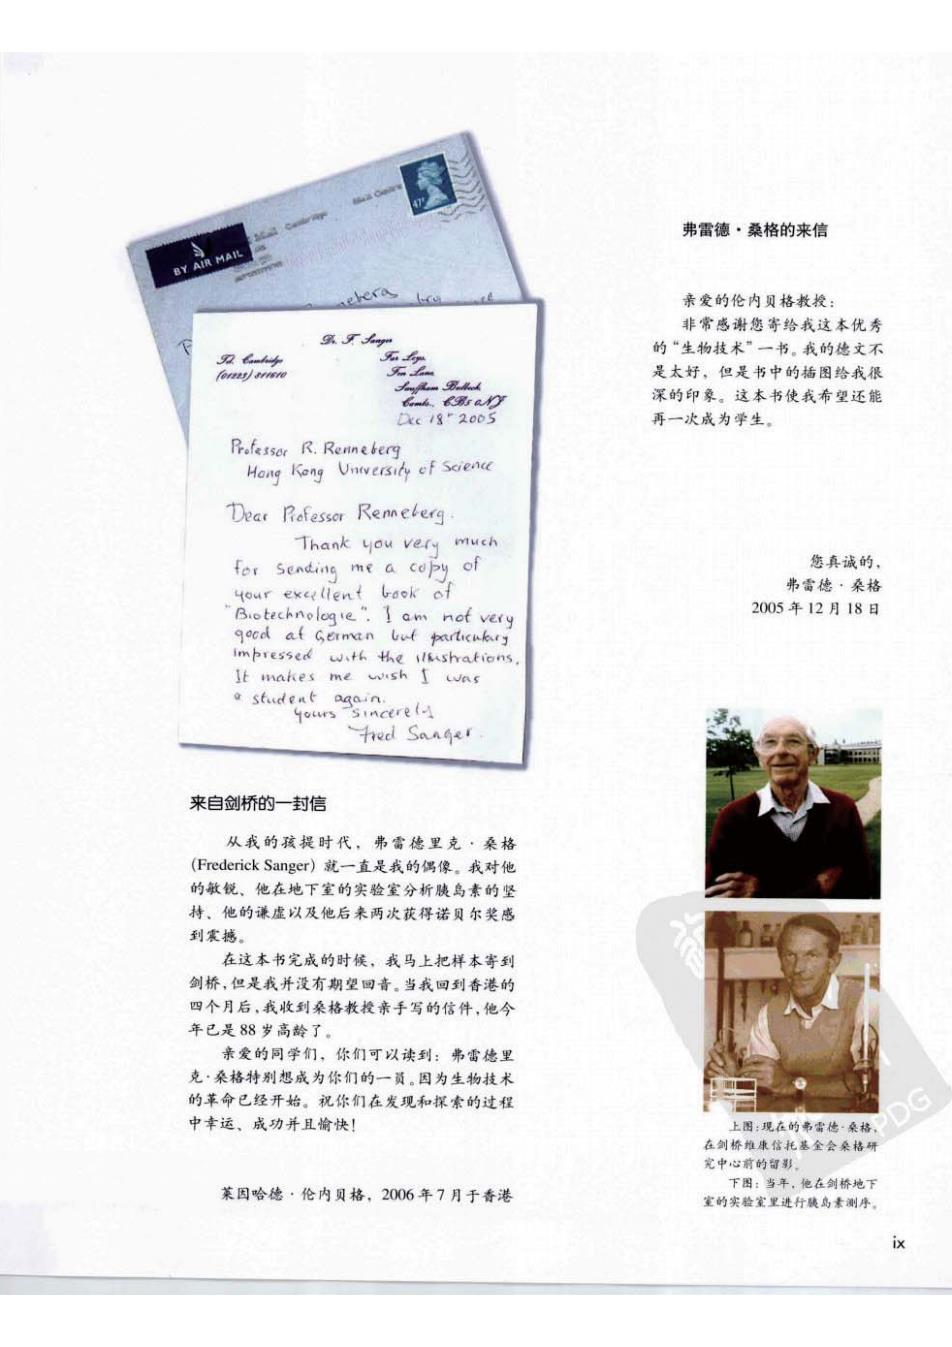 BY AIR MAIL
47P
Dr. F. Sanger
Tel. Cambridge
Far Leys
Fen Lane
Swaffham Bulbeck
Cambs.
Dec 18th 2005
Professor R. Renneberg
Hong Kong University of Science
Dear Professor Renneberg.
Thank you very much
for sending me a copy of
your excellent book of
"Biotechnologie". I am not very
good at German but particulary
impressed with the illustrations.
It makes me wish I was
a student again.
yours sincerely
Fred Sanger.
来自剑桥的一封信
从我的孩提时代，弗雷德里克·桑格
(Frederick Sanger）就一直是我的偶像。我对他
的敏锐、他在地下室的实验室分析胰岛素的坚
持、他的谦虚以及他后来两次获得诺贝尔奖感
到震撼。
在这本书完成的时候，我马上把样本寄到
剑桥，但是我并没有期望回音。当我回到香港的
四个月后，我收到桑格教授亲手写的信件，他今
年已是 88 岁高龄了。
亲爱的同学们，你们可以读到：弗雷德里
克·桑格特别想成为你们的一员。因为生物技术
的革命已经开始。祝你们在发现和探索的过程
中幸运、成功并且愉快！
莱因哈德·伦内贝格，2006 年 7 月于香港
弗雷德·桑格的来信
亲爱的伦内贝格教授：
非常感谢您寄给我这本优秀
的“生物技术”一书。我的德文不
是太好，但是书中的插图给我很
深的印象。这本书使我希望还能
再一次成为学生。
您真诚的，
弗雷德·桑格
2005 年 12 月 18 日
上图：现在的弗雷德·桑格，
在剑桥维康信托基金会桑格研
究中心前的留影。
下图：当年，他在剑桥地下
室的实验室里进行胰岛素测序。
PDG
ix